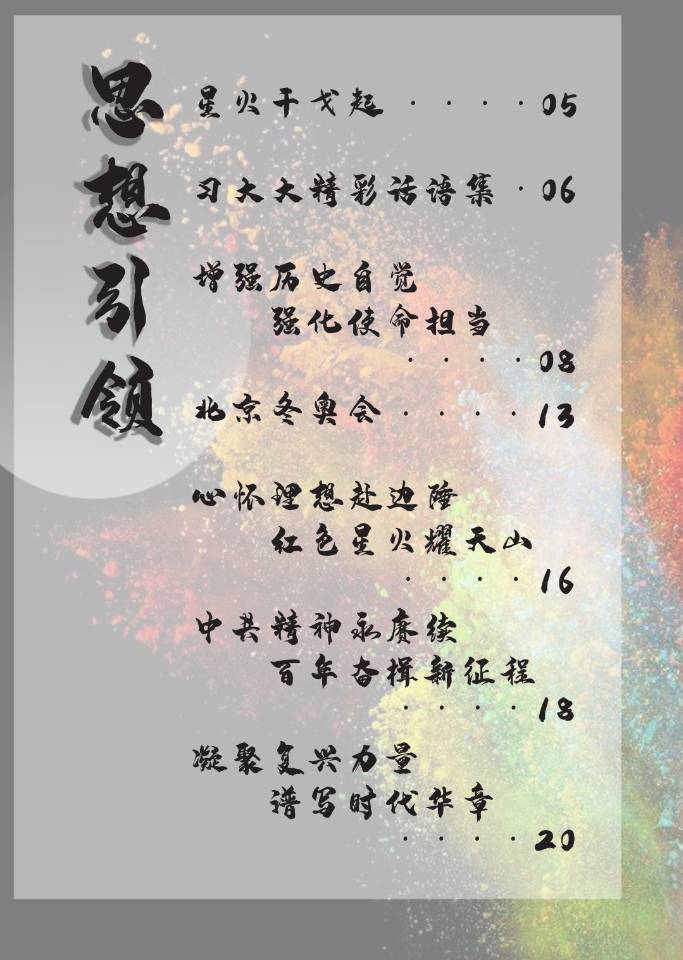 思想引领
星火干戈起 · · · · 05
习大大精彩话语集 · 06
增强历史自觉
强化使命担当
· · · · 08
北京冬奥会 · · · · 13
心怀理想赴边陲
红色星火耀天山
· · · · 16
中共精神永赓续
百年奋楫新征程
· · · · 18
凝聚复兴力量
谱写时代华章
· · · · 20